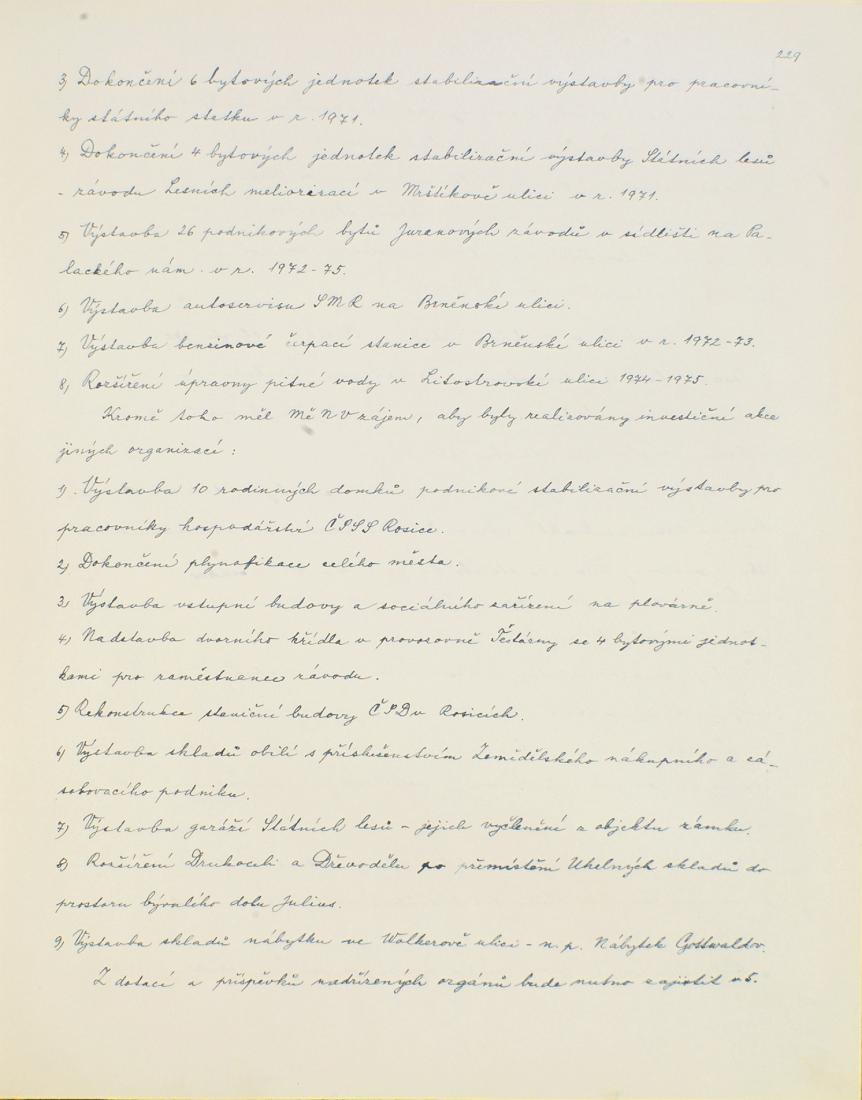 229
3) Dokončení 6 bytových jednotek stabilizační výstavby pro pracovní-
ky státního statku v r. 1971.
4) Dokončení 4 bytových jednotek stabilizační výstavby Státních lesů
- závodu Lesních meliorizací v Mrštíkově ulici v r. 1971.
5) Výstavba 26 podnikových bytů Juranových závodů v sídlišti na Pa-
lackého nám. v r. 1972-75.
6) Výstavba autoservisu SMR na Brněnské ulici.
7) Výstavba bensinové čerpací stanice v Brněnské ulici v r. 1972-73.
8) Rozšíření úpravny pitné vody v Litostrovské ulici 1974-1975.
Kromě toho měl MěNV zájem, aby byly realizovány investiční akce
jiných organizací:
1) Výstavba 10 rodinných domků podnikové stabilizační výstavby pro
pracovníky hospodářství ČSSS Rosice.
2) Dokončení plynofikace celého města.
3) Výstavba vstupní budovy a sociálního zařízení na plovárně.
4) Nadstavba dvorního křídla v provozovně Těstárny se 4 bytovými jednot-
kami pro zaměstnance závodu.
5) Rekonstrukce staniční budovy ČSD v Rosicích.
6) Výstavba skladů obilí s příslušenstvím Zemědělského nákupního a zá-
sobovacího podniku.
7) Výstavba garáží Státních lesů - jejich vyčlenění z objektu zámku.
8) Rozšíření Drukocelu a Dřevodělu po přemístění Uhelných skladů do
prostoru bývalého dolu Julius.
9) Výstavba skladů nábytku ve Wolkerově ulici - n. p. Nábytek Gottwaldov.
Z dotací a příspěvků nadřízených orgánů bude nutno zajistit v 5.